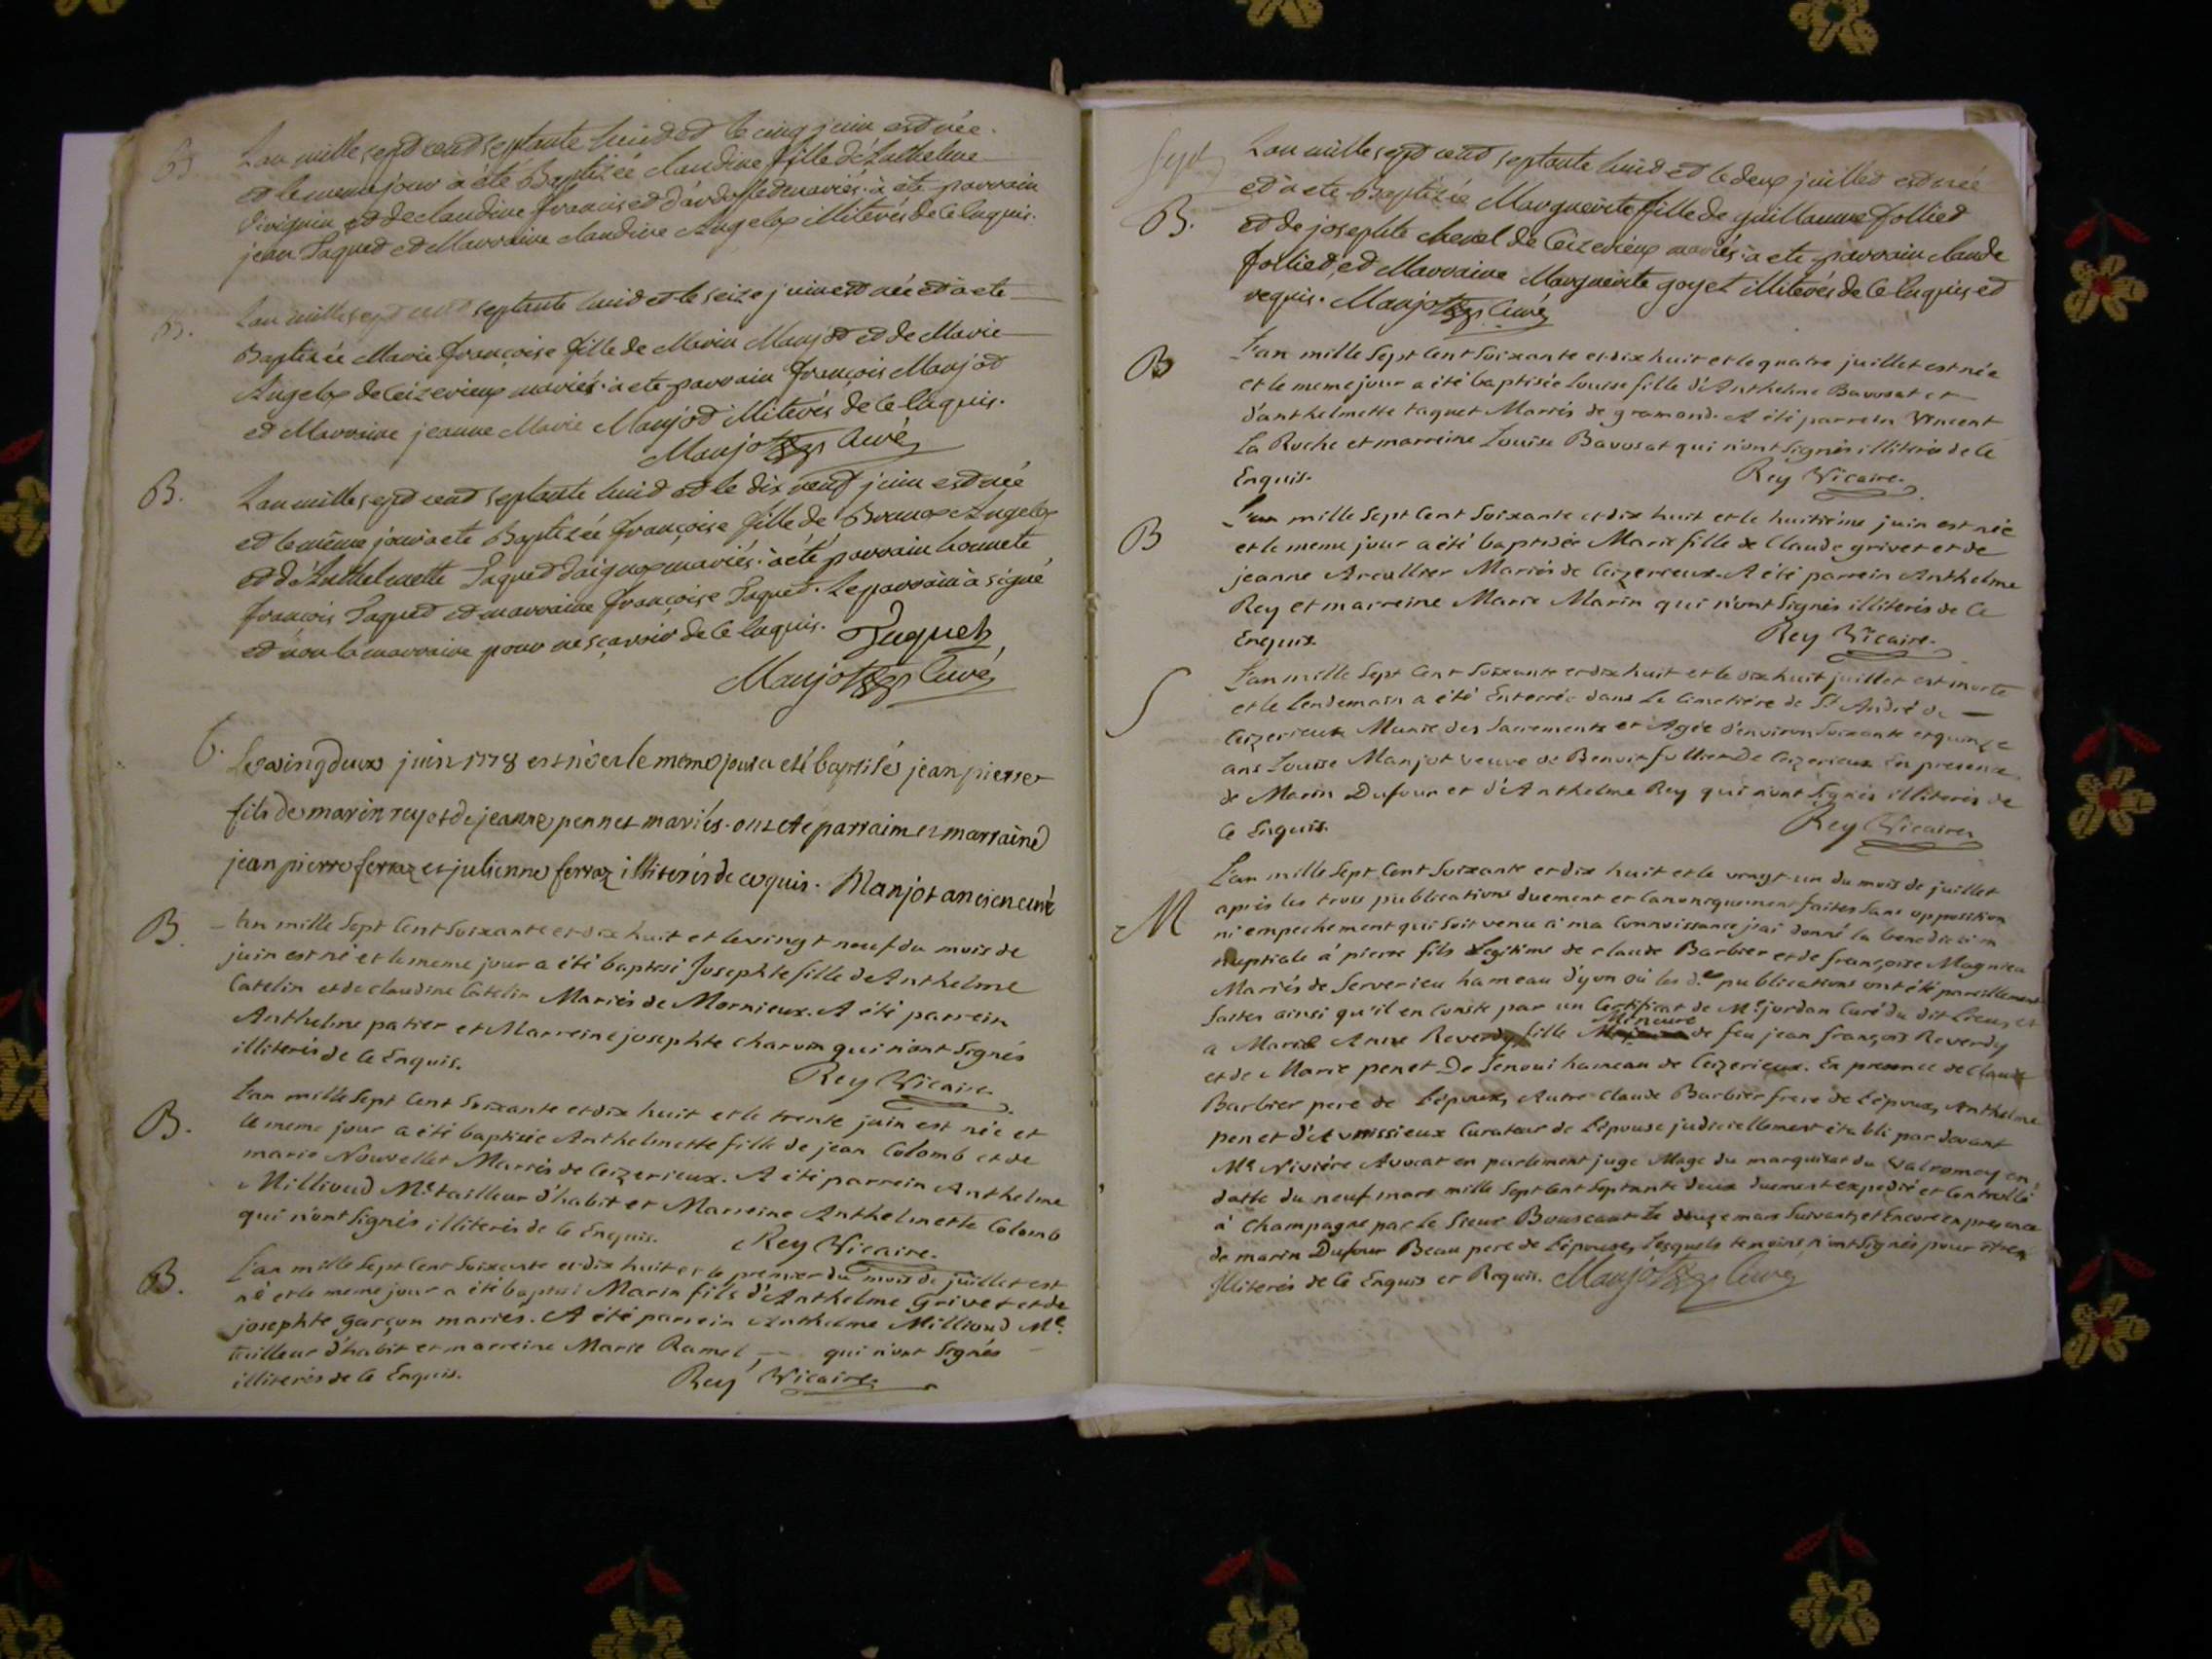 B
L'an mille sept cent septante huit et le cinq juin est née
et le meme jour à été Baptizée claudine fille d'Anthelme
et de claudine francis et mariés. à été parrain
jean Taquet et Marraine claudine Angelox illiterés de ce enquis.
B.
L'an mille sept cent septante huit et le seize juin est née et à ete
Baptizée Marie françoise fille de Marin Manjot et de Marie
Angelox de Ceizerieux mariés. à ete parrain françois Manjot
et Marraine jeanne Marie Manjot illiterés de ce enquis.
Manjot curé
B.
L'an mille sept cent septante huit et le dix neuf juin est née
et le même jour à ete Baptizée françoise fille de Angelox
et d'Anthelmette Taquet mariés. à été parrain honnete
françois Taquet et marraine françoise Taquet. Le parrain à signé
et non la marraine pour ne sçavoir de ce enquis. Taquet
Manjot Curé
b.
Le vingdeux juin 1778 est né et le meme jour a eté baptisé jean pierre
fils de marin rey et de jeanne pennet mariés. ont ete parrain et marraine
jean pierre ferraz et julienne ferraz illiterés de ce quis. Manjot ancien curé
B.
L'an mille Sept Cent Soixante et dix huit et le vingt neuf du mois de
juin est né et le meme jour a été baptisé Josephte fille de Anthelme
Catelin et de claudine Catelin Mariés de Mornieux. A été parrein
Anthelme patier et Marreine josephte Charvin qui n'ont Signés
illiterés de Ce Enquis.
Rey Vicaire.
B.
L'an mille Sept Cent Soixante et dix huit et le trente juin est née et
le meme jour a été baptisée Anthelmette fille de jean Colomb et de
marie Nouvellet Mariés de Ceizerieux. A été parrein Anthelme
Millioud Me tailleur d'habit et Marreine Anthelmette Colomb
qui n'ont Signés illiterés de Ce Enquis. Rey Vicaire.
B.
L'an mille Sept Cent Soixante et dix huit et le premier du mois de juillet est
né et le meme jour a été baptisé Marin fils d'Anthelme Grivet et de
josephte garçon mariés. A été parrein Anthelme Millioud Me.
tailleur d'habit et marreine Marie Ramel, qui n'ont Signés
illiterés de Ce Enquis. Rey Vicaire.
Sept
B.
L'an mille sept cent septante huit et le deux juillet est née
et à ete Baptizée Marguerite fille de guillaume follied
et de josephte chevel de Ceizerieux mariés. à ete parrain claude
follied, et Marraine Marguerite goyet illiterés de ce enquis et
requis. Manjot Curé
B
L'an mille Sept Cent Soixante et dix huit et le quatre juillet est née
et le meme jour a été baptisée Louise fille d'Anthelme Bavosat et
d'anthelmette taquet Mariés de gramond. A été parrein Vincent
La Roche et marreine Louise Bavosat qui n'ont Signés illiterés de Ce
Enquis. Rey Vicaire.
B
L'an mille Sept Cent Soixante et dix huit et le huitiéme juin est née
et le meme jour a été baptisée Marie fille de Claude grivet et de
jeanne Mariés de Ceizerieux. A été parrein Anthelme
Rey et marreine Marie Marin qui n'ont Signés illiterés de Ce
Enquis. Rey Vicaire.
S
L'an mille Sept Cent Soixante et dix huit et le dix huit juillet est morte
et le lendemain a été Enterrée dans Le Cimetiére de St André de
Ceizerieux Munie des Sacrements et Agée d'environ Soixante et quinze
ans Louise Manjot veuve de Benoit follier De Ceizerieux En presence
de Marin Dufour et d'Anthelme Rey qui n'ont Signés illiterés de
Ce Enquis. Rey Vicaire
M
L'an mille Sept Cent Soixante et dix huit et le vingt-un du mois de juillet
après les trois publications duement et Canoniquement faites Sans opposition
ni empechement qui Soit venu à ma Connoissance j'ai donné la benediction
nuptiale à pierre fils Legitime de claude Barbier et de françoise Magnien
Mariés de Serverieu hameau d'yon où les d. es publications ont été pareillement
faites ainsi qu'il en Conste par un Certificat de Mr jordan Curé du dit Lieu, et
Mineure
a Marie Anne Reverdy fille de feu jean françois Reverdy
et de Marie penet De Senoui hameau de Ceizerieux. En presence de Claude
Barbier pere de L'époux, Autre Claude Barbier frere de L'époux, Anthelme
penet d'Avrissieux Curateur de L'épouse judiciellement établi par devant
Me Nivière Avocat en parlement juge Mage du marquisat du Valromey en
datte du neuf mars mille Sept Cent Septante deux duement expedié et Controllé
à Champagne par le Sieur Bouscaut Le douze mars Suivant, et Encore en presence
de marin Dufour Beau pere de L'épouse, Lesquels temoins n'ont Signés pour être
Illiterés de Ce Enquis et Requis. Manjot Curé